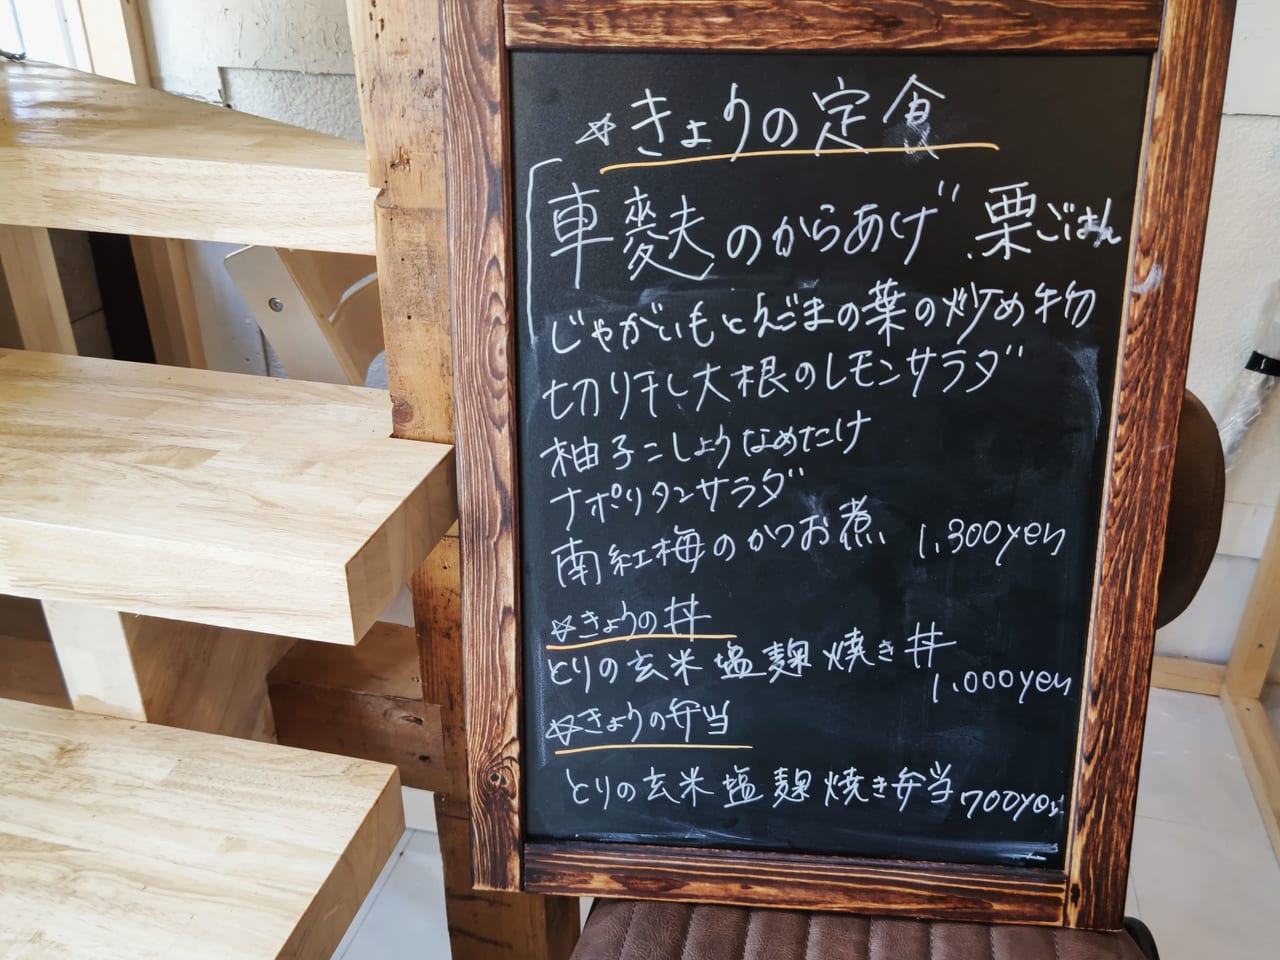 ☆きょりの定食
車麩のからあげ 栗ごはん
じゃがいもとえごまの葉の炒め物
切り干し大根のレモンサラダ
柚子こしょうなめたけ
ナポリタンサラダ
南紅梅のかつお煮 1,300yen
☆きょりの丼
とりの玄米塩麹焼き丼
1,000yen
☆きょりの弁当
とりの玄米塩麹焼き弁当 700yen